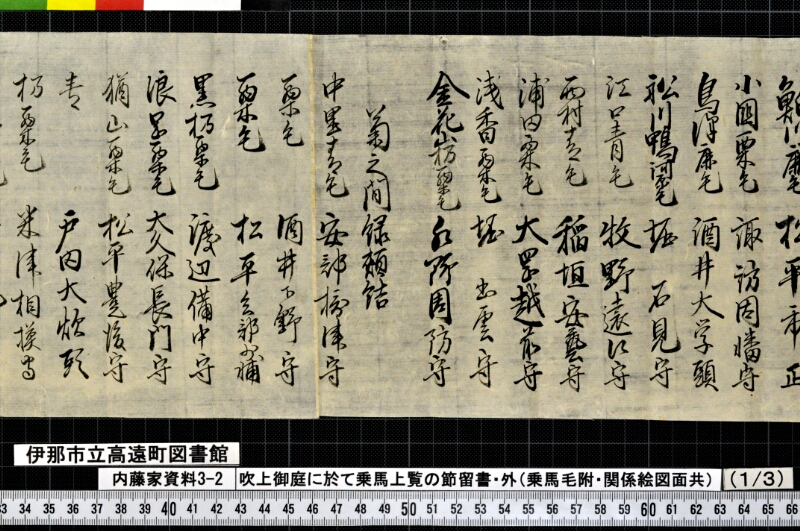 鮎川鹿毛 松平市正
小国栗毛 諏訪因幡守
鳥洋鹿毛 酒井大学頭
松川鴨河原毛 堀石見守
江口青毛 牧野遠江守
西村青毛 稲垣安藝守
浦田栗毛 大岡越前守
浅香栗毛 堀出雲守
金花山栃栗毛 水野周防守
菊之間縁頬詰
中里青毛 安部摂津守
栗毛 酒井下野守
栗毛 松平兵部少輔
黒栃栗毛 渡辺備中守
浪岡栗毛 大久保長門守
猶山栗毛 松平豊後守
青 戸田大炊頭
栃栗毛 米津相模守
伊那市立高遠町図書館
内藤家資料3-2 吹上御庭に於て乗馬上覧の節留書・外(乗馬毛附・関係絵図面共) (1/3)
33 34 35 36 37 38 39 40 41 42 43 44 45 46 47 48 49 50 51 52 53 54 55 56 57 58 59 60 61 62 63 64 65 66